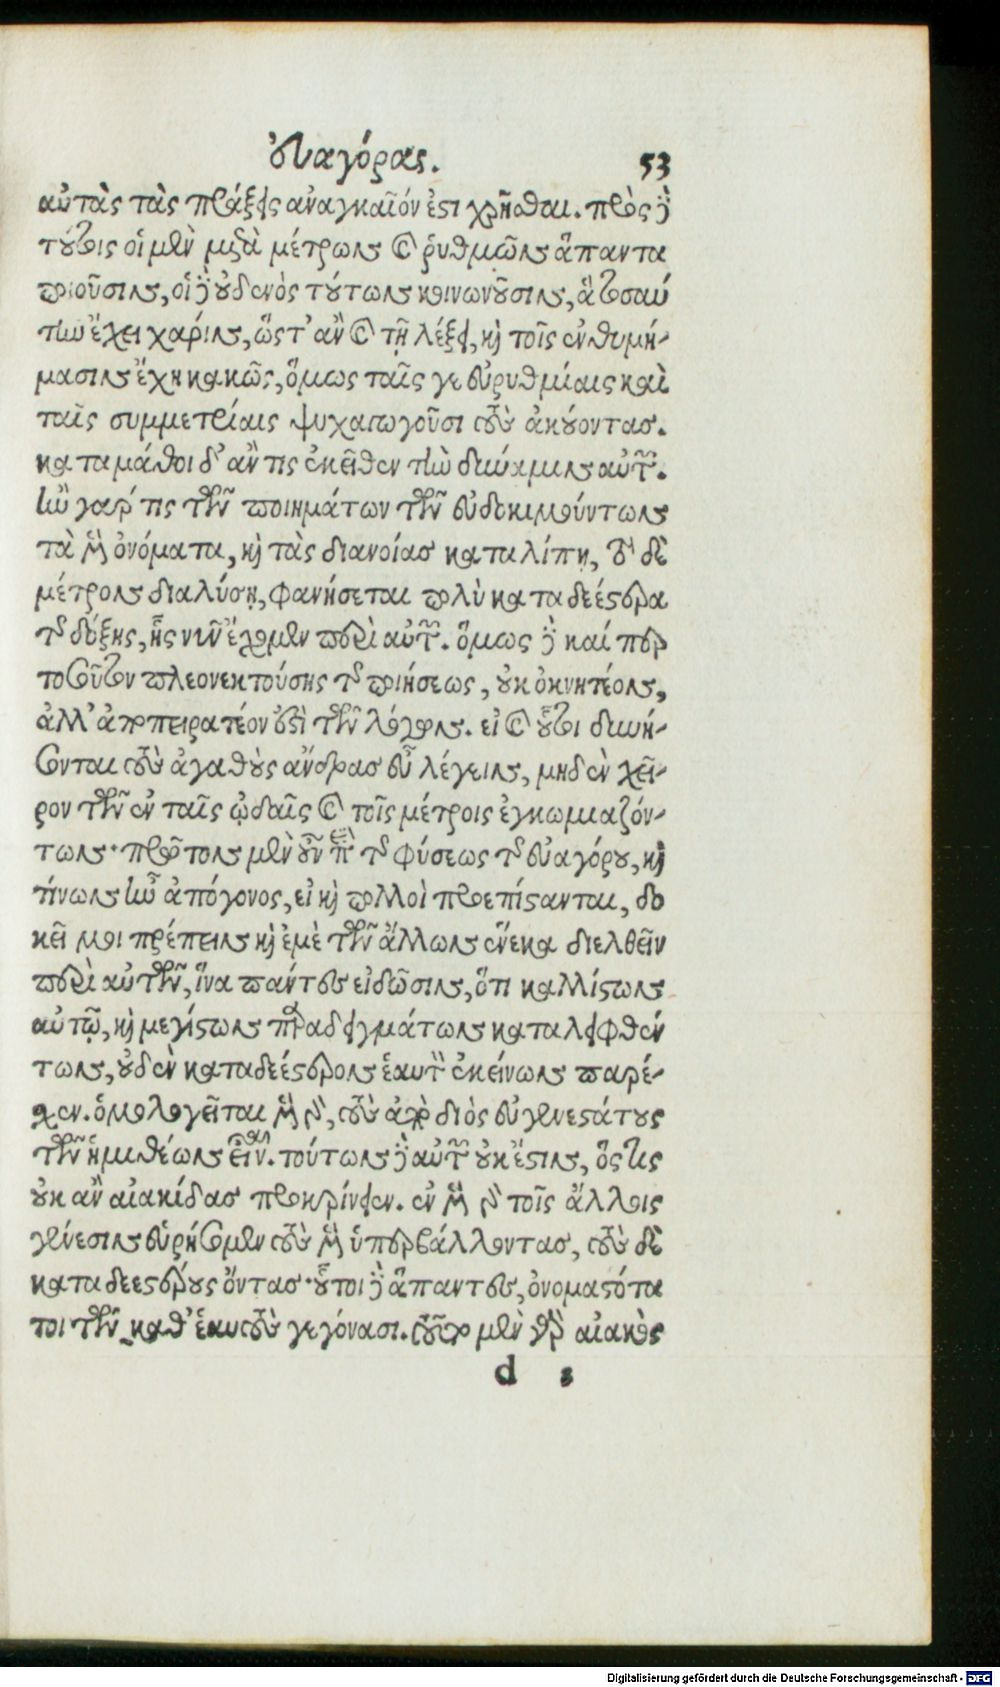 Εὐαγόρας. 53
αὐτὰς τὰς πράξεις ἀναγκαῖόν ἐστι χρῆσθαι. πρὸς δὲ
τούτοις οἱ μὲν μετὰ μέτρων καὶ ῥυθμῶν ἅπαντα
ποιοῦσιν, οἱ δὲ οὐδενὸς τούτων κοινωνοῦσιν, ἃ τοσαύ
την ἔχει χάριν, ὥστ' ἂν καὶ τῇ λέξει, καὶ τοῖς ἐνθυμή-
μασιν ἔχῃ κακῶς, ὅμως ταῖς γε εὐρυθμίαις καὶ
ταῖς συμμετρίαις ψυχαγωγοῦσι τοὺς ἀκούοντας.
καταμάθοι δ' ἄν τις ἐκεῖθεν τὴν δύναμιν αὐτῶν.
ἢν γάρ τις τῶν ποιημάτων τῶν εὐδοκιμούντων
τὰ μὲν ὀνόματα, καὶ τὰς διανοίας καταλίπῃ, τὸ δὲ
μέτρον διαλύσῃ, φανήσεται πολὺ καταδεέστερα
τῆς δόξης, ἧς νῦν ἔχομεν περὶ αὐτῶν. ὅμως δὲ καί περ
τοσοῦτον πλεονεκτούσης τῆς ποιήσεως, οὐκ ὀκνητέον,
ἀλλ' ἀποπειρατέον ἐστὶ τῶν λόγων. εἰ καὶ οὗτοι δυνή-
σονται τοὺς ἀγαθοὺς ἄνδρας εὖ λέγειν, μηδὲν χεῖ-
ρον τῶν ἐν ταῖς ᾠδαῖς καὶ τοῖς μέτροις ἐγκωμιαζόν-
των· πρῶτον μὲν οὖν περὶ τῆς φύσεως τῆς εὐαγόρου, καὶ
τίνων ἦν ἀπόγονος, εἰ καὶ πολλοὶ προεπίστανται, δο
κεῖ μοι πρέπειν καὶ ἐμὲ τῶν ἄλλων ἕνεκα διελθεῖν
περὶ αὐτῶν, ἵνα πάντες εἰδῶσιν, ὅτι καλλίστων
αὐτῷ, καὶ μεγίστων παραδειγμάτων καταλειφθέν
των, οὐδὲν καταδεέστερον ἑαυτὸν ἐκείνων παρέ-
σχεν. ὁμολογεῖται μὲν γὰρ, τοὺς ἀπὸ διὸς εὐγενεστάτους
τῶν ἡμιθέων εἶναι. τούτων δὲ αὐτῶν οὐκ ἔστιν, ὅστις
οὐκ ἂν αἰακίδας προκρίνειεν. ἐν μὲν γὰρ τοῖς ἄλλοις
γένεσιν εὑρήσομεν τοὺς μὲν ὑπερβάλλοντας, τοὺς δὲ
καταδεεστέρους ὄντας· οὗτοι δὲ ἅπαντες, ὀνομαστότα
τοι τῶν καθ' ἑαυτοὺς γεγόνασι. τοῦτο μὲν γὰρ αἰακὸς
d 5
Digitalisierung gefördert durch die Deutsche Forschungsgemeinschaft - DFG